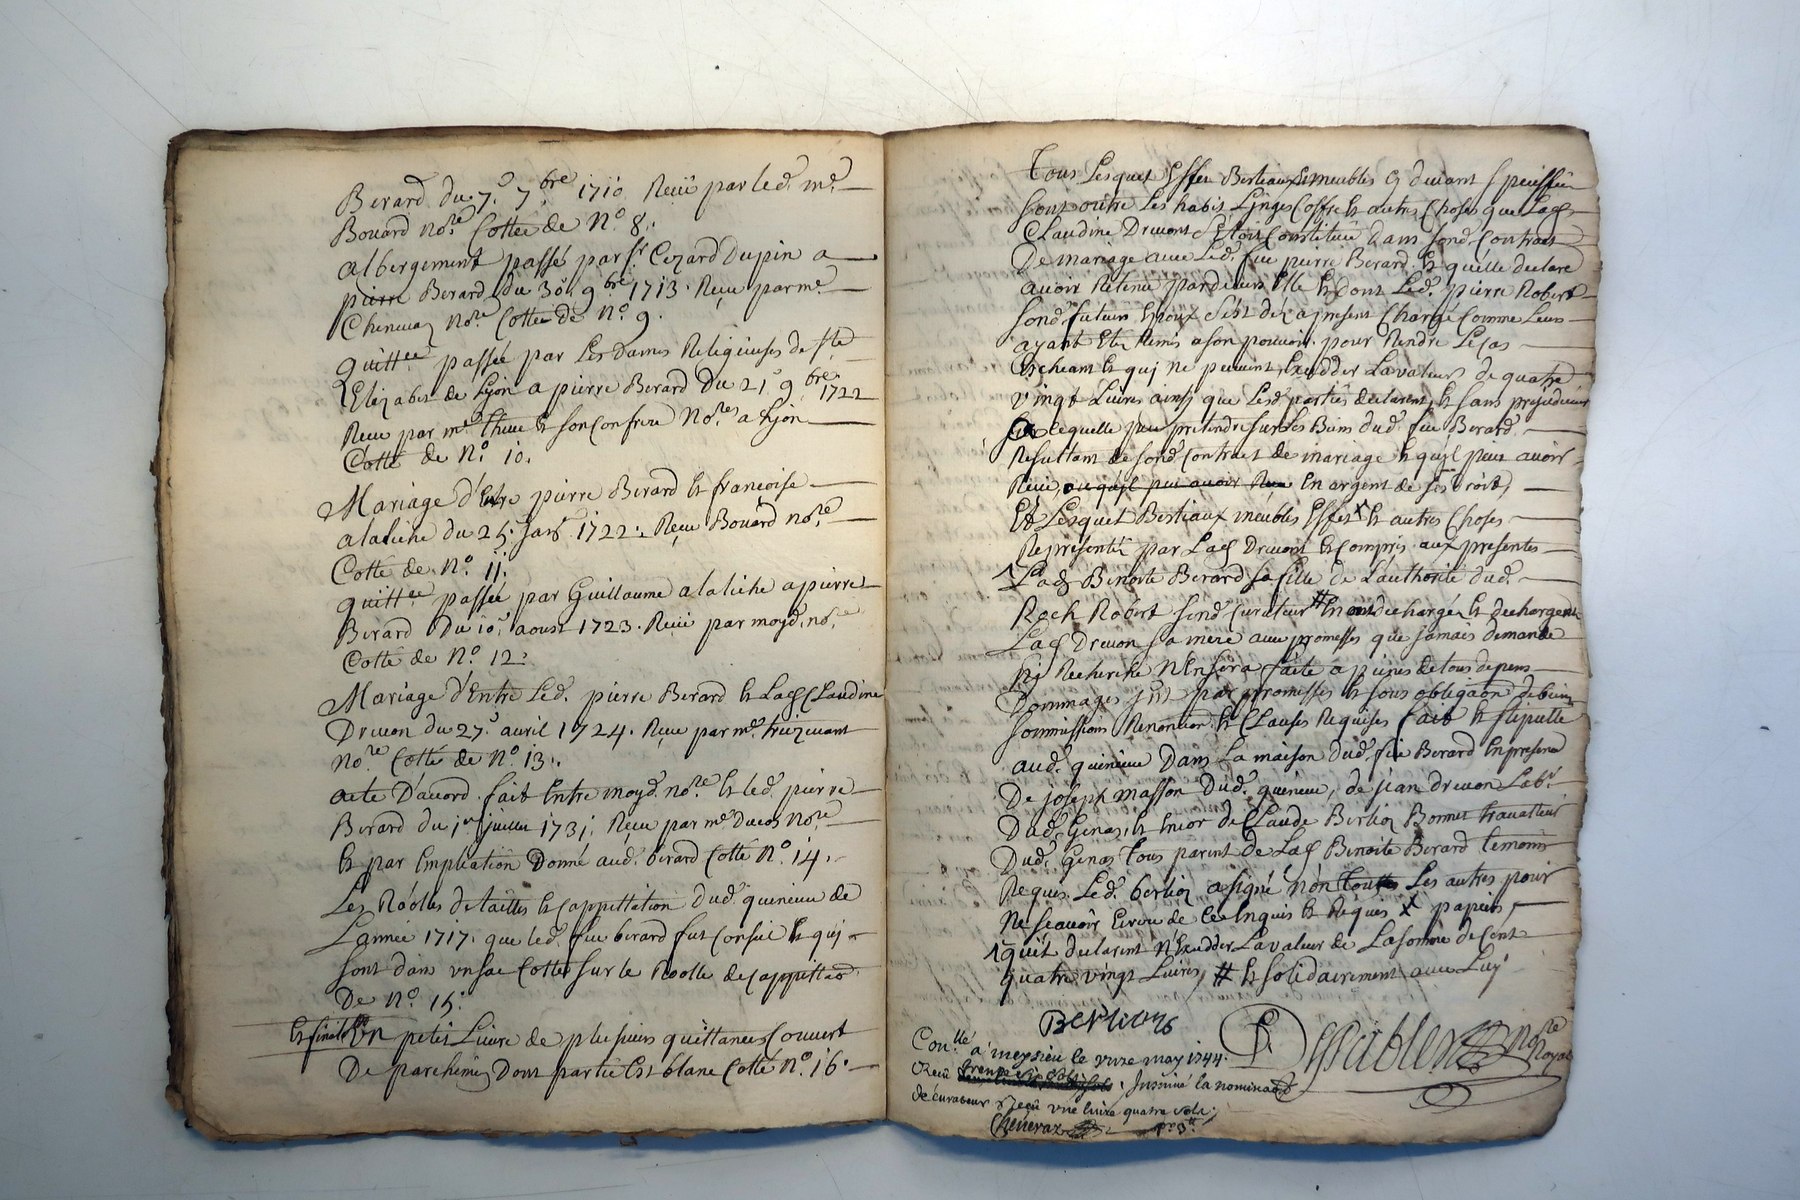 Berard du 7.e 7.bre 1710 Reçu par led. me.
Bouard no.re Cotteé de N.o 8.
albergement passé par sr Cezard Dupin a
pierre Berard du 30 9.bre 1713. Reçu par me.
Chenevaz no.re Cotteé de N.o 9.
quitt.ce passée par Les Dames Religieuses de s.te
Elizabet de Lyon a pierre Berard Du 21e 9.bre 1722
Reçu par me. & son Confrere No.res a Lyon
Cotté de N.o 10.
Mariage d'Entre pierre Berard & francoise
alatiche du 25. Janr. 1722. Reçu Bouard no.re
Cotté de N.o 11.
quitt.ce passée par Guillaume alatiche a pierre
Berard Du 10.e aoust 1723. Reçu par moyd. no.re
Cotté de N.o 12.
Mariage d'Entre Led. pierre Berard & Lad. Claudine
Drevon du 27.e avril 1724. Reçu par me.
No.re Cotté de N.o 13.
acte D'acord fait Entre moyd. no.re & led. pierre
Berard du 1er juillet 1731. Reçu par me. Ducos No.re
& par Empliation Donné aud. berard Cotté N.o 14.
Les Róolles de tailles & cappittation dud. quinieu de
L'année 1717. que led. feu berard fut Consul & qui
sont dans un sac Cottés sur le Roolle de cappittaõn
De N.o 15.
& finalem.t Un petit Livre de plusieurs quittances Couvert
De parchemin Dont partie Est blanc Cotté N.o 16.
Tous Lesquels Effets Bestiaux & meubles cy devant speciffiés
sont outre Les habits Linges Coffre & autres Choses que Lad.
Claudine Drevont s'Etoit Constituée Dans sond. Contract
De mariage avec Led. feu pierre Berard & qu'elle declare
avoir Retenu pardevers Elle & dont Led. pierre Robert
sond. futeur Epoux s'est déz a present Chargé Comme Leurs
ayant Eté Remis a son pouvoir pour Rendre Le Cas
Echeant & qui ne peuvent Exceder La valeur de quatre
vingt Livres ainsi que Lesd. parties declarent, & sans prejudicier
Ce lequelle peu pretendre sur Les Biens dud. feu Berard.
Resultant de sond. Contract de mariage & qu'il peut avoir
Reçu, ou qu'il peu avoir Reçu En argent de ses Droits,
Et Lesquels Bestiaux meubles Effets X & autres Choses
Representés par Lad. Drevont & compris aux presentes
Lad. Benoite Berard sa fille de L'authorité dud.
Roch Robert sond. Curateur # En ont dechargé & dechargent
Lad. Drevon sa mere avec promesses que jamais demande
ny Recherche N'En sera faite a peines de tous depens
Dommages Int. par promesses & sous obligaõn de biens
sommissions Renonciaõn & Clauses Requises fait & stipullé
aud. quinieu Dans La maison dud. feu Berard En presence
De joseph masson Dud. quinieu, de jean drevon Lab.r
Dud. Genas & Encor de Claude Berlioz Bonnet travailleur
Dud. Genas Tous parent de Lad. Benoite Berard temoins
Requis Led. berlioz a signé non toutes Les autres pour
Ne sçavoir Ecrire de ce Enquis & Requis X papiers,
quit declarent N'Exceder La valeur de La somme de Cent
quatre vingt Livres, # & solidairement avec Luy
Berlioz
No.re Royal
Con.llé a meysieu le unze may 1744.
Reçu trente six sols. Insinué la nominaõn
de curateur Reçu une livre quatre sols.
Cheneraz